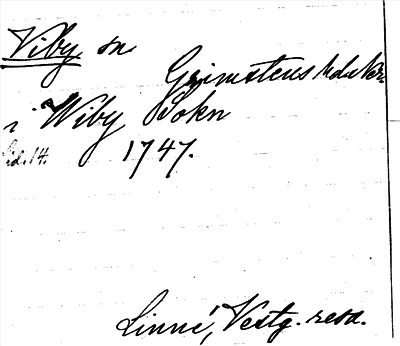 Viby sn
Grimstens hd Ner.
i Wiby Sokn
sid. 14. 1747.
Linné, Vestg. resa.